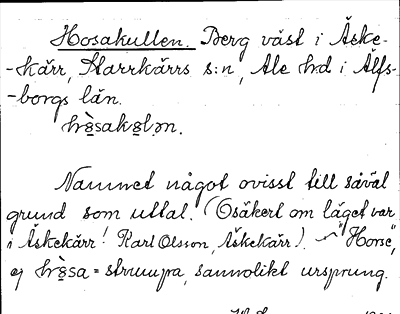 Hosakullen. Berg väst i Äske-
-kärr, Starrkärrs s:n, Ale hd i Älfs-
-borgs län.
hò̤sakɵlɘn.
Namnet något ovisst till såväl
grund som uttal. (Osäkert om läget var
i Äskekärr! Karl Olsson, Äskekärr). "Horse",
ej hò̤sa = strumpa, sannolikt ursprung.